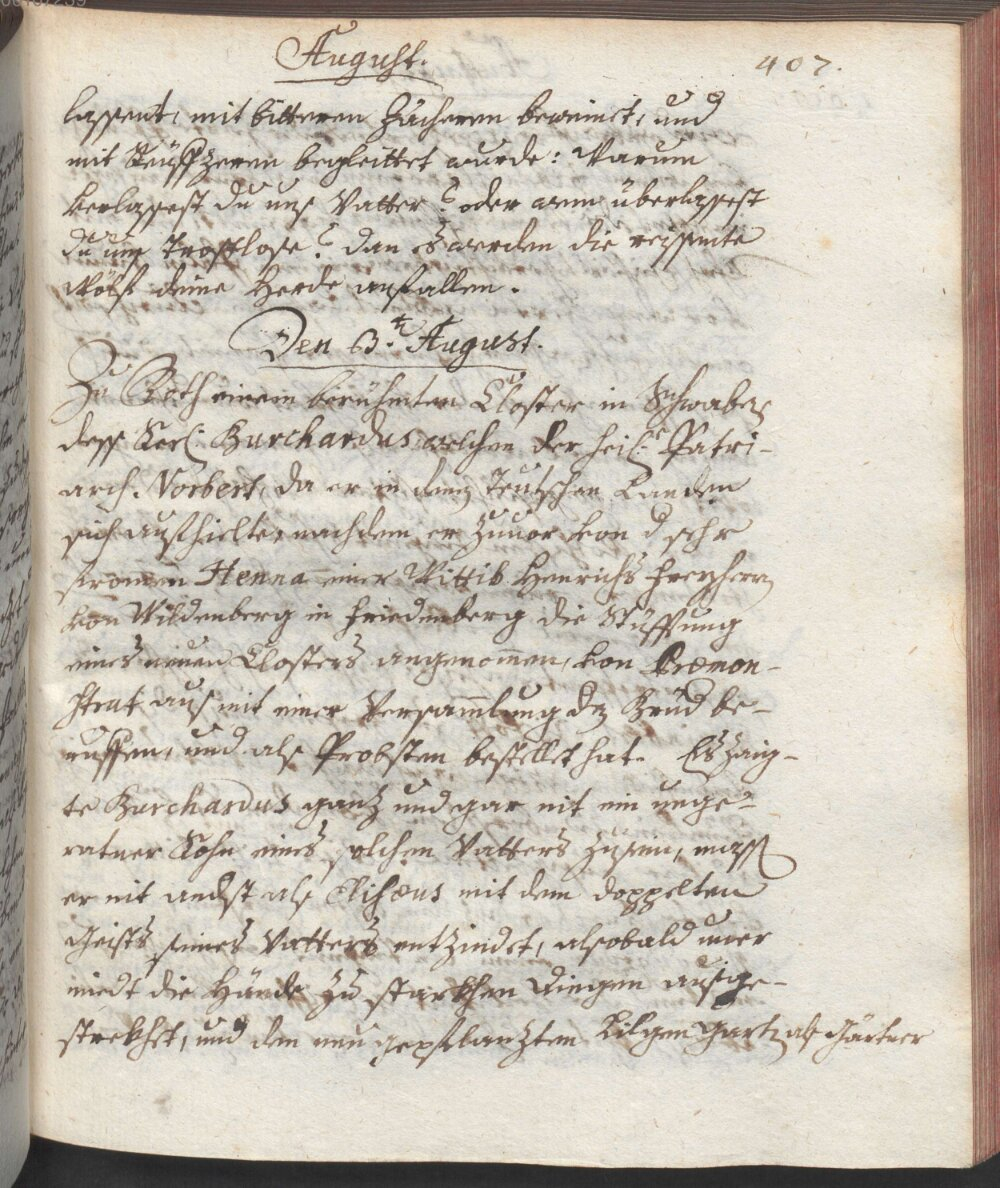 August.
407.
lassent, mit bitteren Zächeren beweinet, und
mit Seüffzeren begleittet wurde: Warum
verlassest du uns Vatter? oder wem überlassest
du uns trostlose? dan es werden die reissente
Wölff deine Herde anfallen.
Den 3.t August.
Zu Roth einem berühmten Closter in Schwaben
dess Seel: Burchardus welchen der heil: Patri-
arch Norbert, da er in denen Teutschen Landen
sich aufhielte, nachdem er zuvor von d sehr
fromen Henna einer Wittib Heinrichs Freyherrn
von Wildenberg in Friedenberg die Stüfftung
eines neuen Closters angenomen, von Præmon-
strat aus mit einer Versamlung der Brüd be-
ruffen, und als Probsten bestellet hat. Es zaig-
te Burchardus gantz und gar nit ein unge-
ratner Sohn eines solchen Vatters zu seyn, mass
er nit andst als Elisæus mit dem doppelten
Geists seines Vatters entzindet, alsobald uner
miedt die Hände zu starkhen Dingen ausge-
strekhet, und den neu gepflanzten Lilgen Gartz als Gärtner